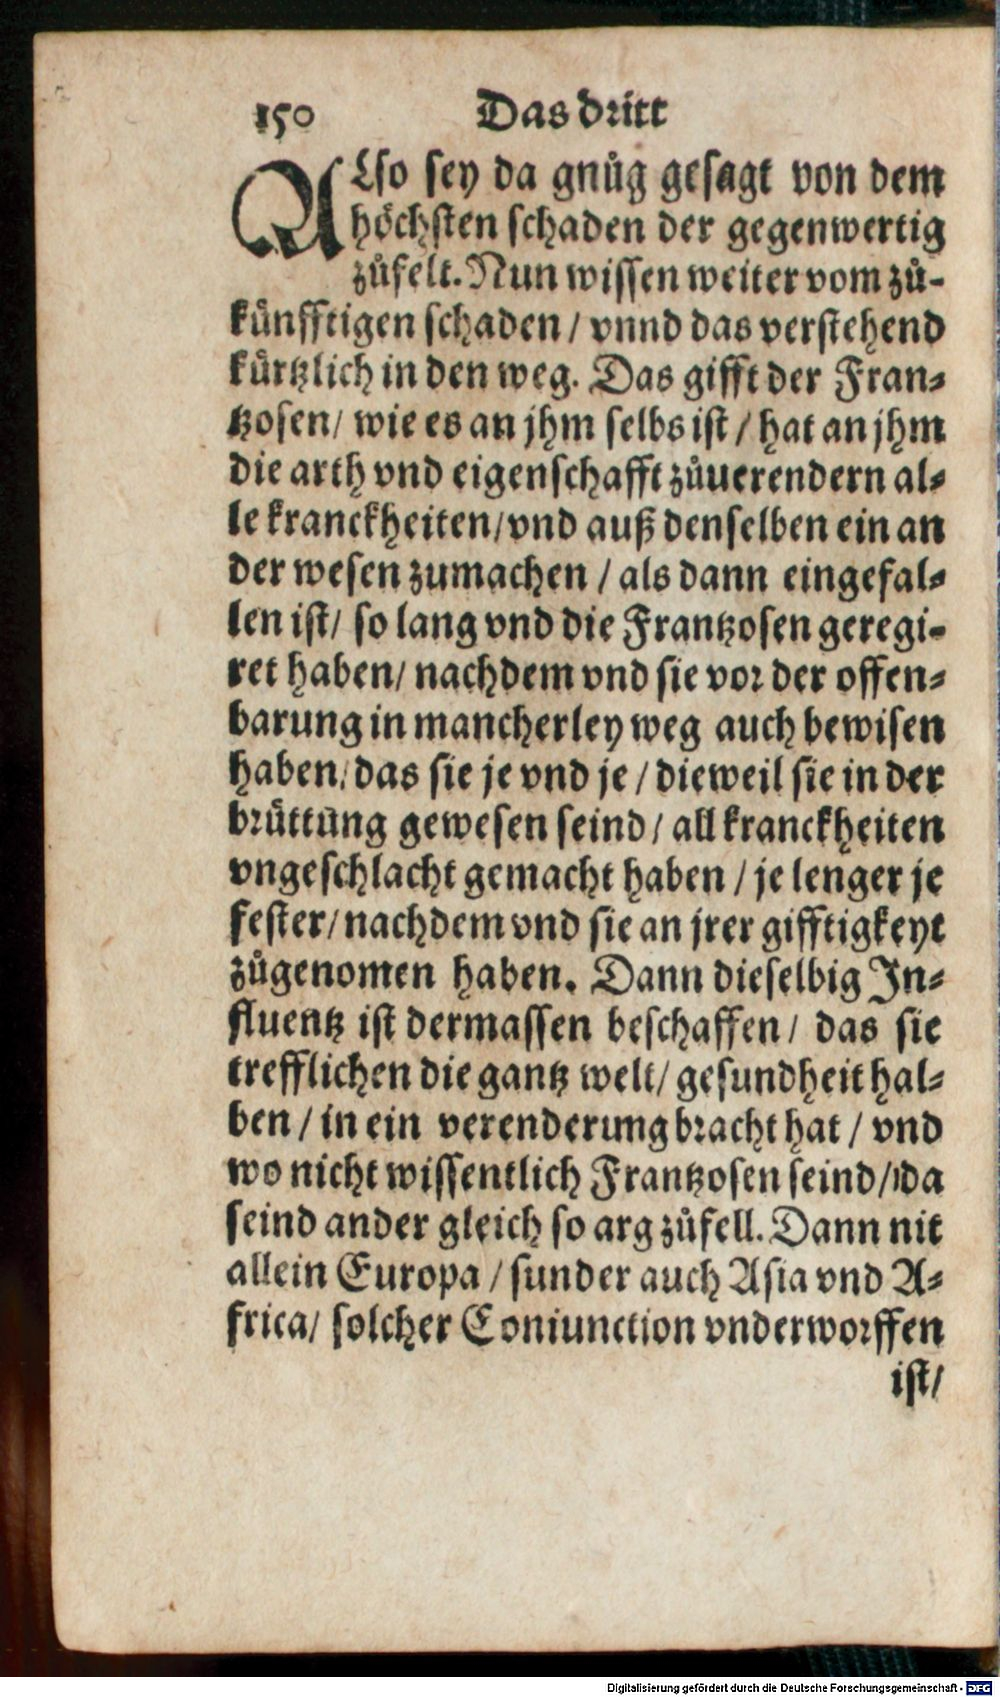 150 Das dritt
ALso sey da gnůg gesagt von dem
höchsten schaden der gegenwertig
zůfelt. Nun wissen weiter vom zů-
künfftigen schaden / vnnd das verstehend
kürtzlich in den weg. Das gifft der Fran-
tzosen / wie es an jhm selbs ist / hat an jhm
die arth vnd eigenschafft zůuerendern al-
le kranckheiten / vnd auß denselben ein an
der wesen zumachen / als dann eingefal-
len ist / so lang vnd die Frantzosen geregi-
ret haben / nachdem vnd sie vor der offen-
barung in mancherley weg auch bewisen
haben / das sie je vnd je / dieweil sie in der
brüttung gewesen seind / all kranckheiten
vngeschlacht gemacht haben / je lenger je
fester / nachdem vnd sie an jrer gifftigkeyt
zůgenomen haben. Dann dieselbig In-
fluentz ist dermassen beschaffen / das sie
trefflichen die gantz welt / gesundheit hal-
ben / in ein verenderung bracht hat / vnd
wo nicht wissentlich Frantzosen seind / da
seind ander gleich so arg zůfell. Dann nit
allein Europa / sunder auch Asia vnd A-
frica / solcher Coniunction vnderworffen
ist /
Digitalisierung gefördert durch die Deutsche Forschungsgemeinschaft - DFG